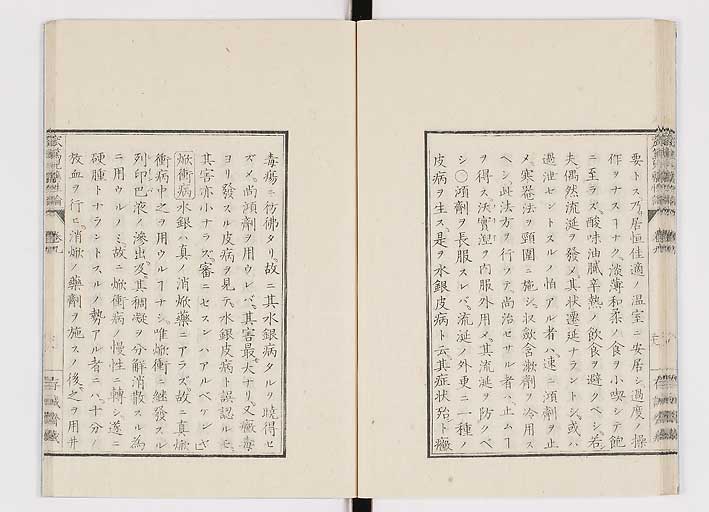 要トス乃居恒佳適ノ温室ニ安居シ過度ノ操
作ヲナスヿナク淡薄和柔ノ食ヲ小喫シテ飽
ニ至ラズ酸味油膩辛熱ノ飲食ヲ避クベシ若
夫偶然流涎ヲ發メ其状遷延ナラントシ或ハ
過泄セントスルノ怕アル者ハ速ニ澒劑ヲ止
メ寒罨法ヲ頸圍ニ施シ收歛含漱劑ヲ冷用ス
ヘシ此法方ヲ行ツテ尚治セサル者ハ止ムヿ
ヲ得ス決實涅ヲ内服外用メ其流涎ヲ防クベ
シ〇澒劑ヲ長服スレバ流涎ノ外更ニ一種ノ
皮病ヲ生ス是ヲ水銀皮病ト云其症状殆ト癩
毒瘍ニ彷彿タリ故ニ其水銀病タルヲ曉得セ
ズメ尚澒劑ヲ用ウレバ其害最大ナリ又癩毒
ヨリ發スル皮病ヲ見テ水銀皮病ト誤認ルモ
其害亦小ナラス審ニセスンハアルベケンヤ
焮衝病水銀ハ真ノ消焮藥ニアラズ故ニ真焮
衝病中之ヲ用ウルヿナシ唯焮衝ニ継發スル
列印巴液ノ滲出及其稠凝ヲ分解消散スル為
ニ用ウルノミ故ニ焮衝病ノ慢性ニ轉シ遂ニ
硬腫トナラントスルノ勢アル者ニハ十分ノ
放血ヲ行ヒ消焮ノ藥劑ヲ施スノ後之ヲ用井